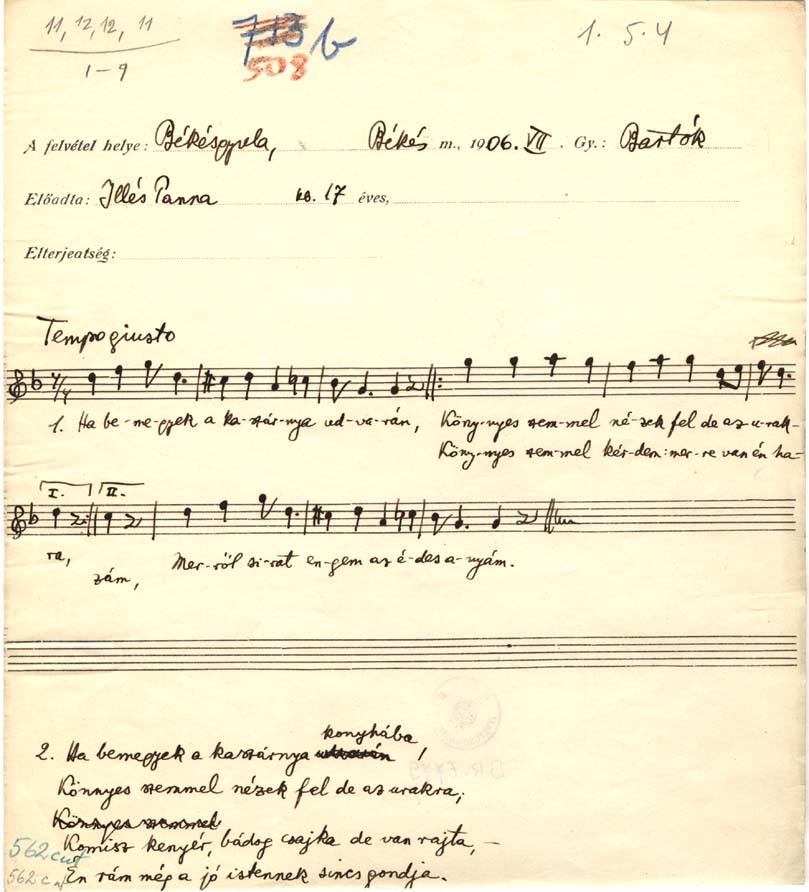 11, 12, 12, 11
1-9
713 b
508
1. 5. 4
A felvétel helye: Békésgyula, Békés m., 1906. VII. Gy.: Bartók
Előadta: Illés Panna kb. 17 éves,
Elterjeatség:
Tempo giusto
1. Ha be-me-gyek a ka-szár-nya ud-va-rán, Köny-nyes szem-mel né-zek fel de az u-rak-
Köny-nyes szem-mel kér-dem: mer-re van én ha-
I. II.
ra,
zám, Mer-ről si-rat en-gem az é-des a-nyám.
konyhába
2. Ha bemegyek a kaszárnya udvarán,
Könnyes szemmel nézek fel de az urakra;
Könnyes szemmel
Komisz kenyér, bádog csajka de van rajta, -
562 c
562 c Én rám még a jó istennek sincs gondja.